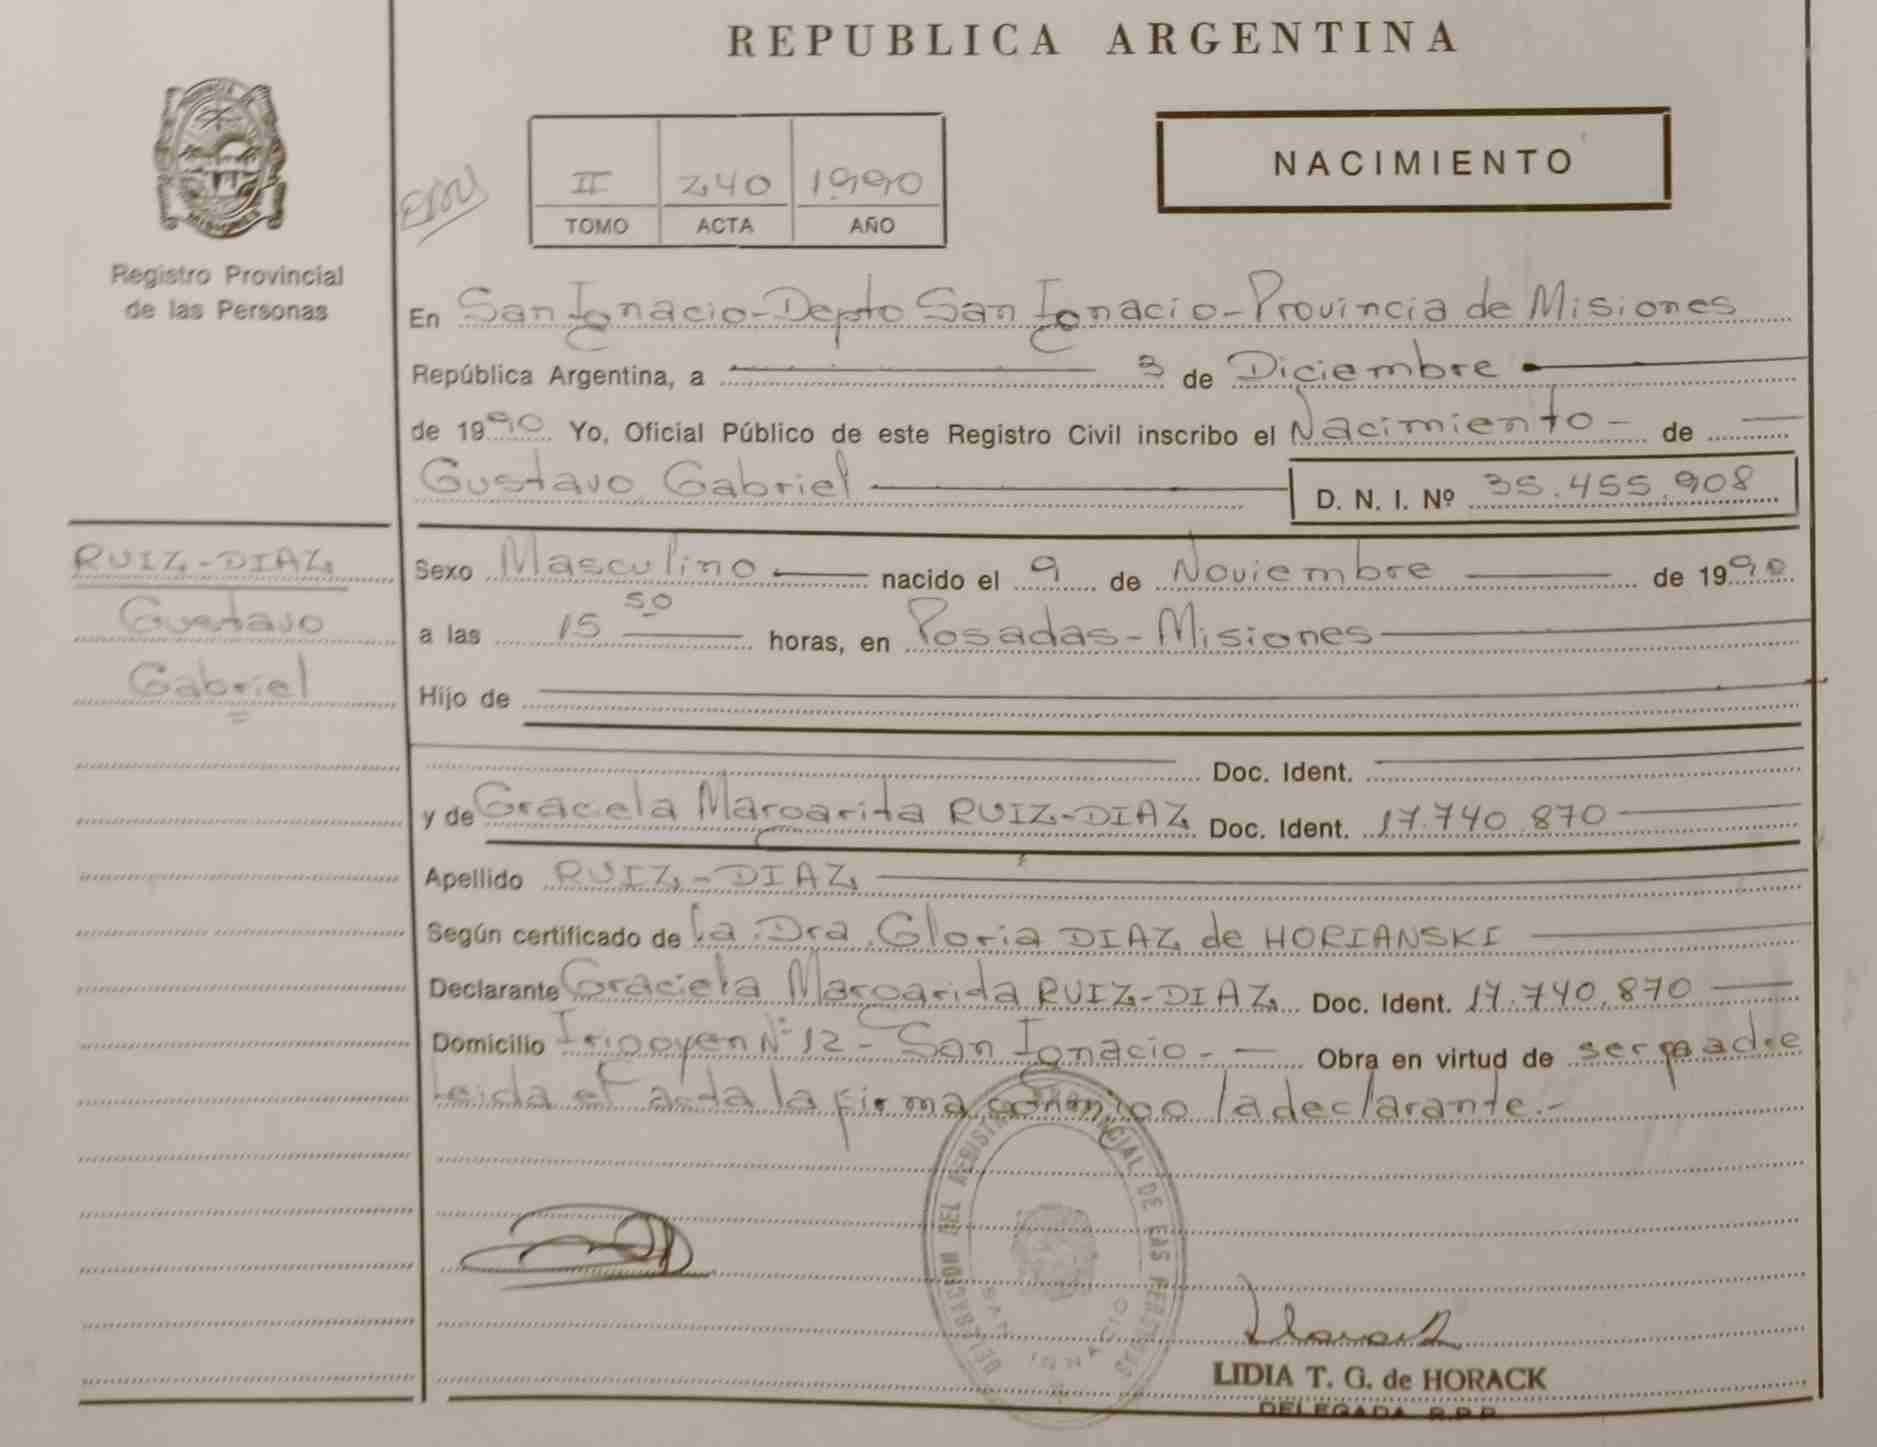 REPUBLICA ARGENTINA
NACIMIENTO
II 240 1990
TOMO ACTA AÑO
Registro Provincial
de las Personas
En San Ignacio-Depto San Ignacio-Provincia de Misiones
República Argentina, a 3 de Diciembre
de 1990 Yo, Oficial Público de este Registro Civil inscribo el Nacimiento - de
Gustavo Gabriel D. N. I. Nº 35.455.908
RUIZ-DIAZ
Gustavo
Gabriel
Sexo Masculino nacido el 9 de Noviembre de 1990
a las 15 50 horas, en Posadas-Misiones
Hijo de
Doc. Ident.
y de Graciela Margarita RUIZ-DIAZ Doc. Ident. 17.740.870
Apellido RUIZ-DIAZ
Según certificado de la Dra. Gloria DIAZ de HORIANSKI
Declarante Graciela Margarida RUIZ-DIAZ Doc. Ident. 17.740.870
Domicilio Irigoyen Nº 12 - San Ignacio.- Obra en virtud de ser madre
Leida el acta la firma conmigo la declarante.-
DELEGACION DEL REGISTRO PROVINCIAL DE LAS PERSONAS
SAN IGNACIO
LIDIA T. G. de HORACK
DELEGADA R.P.P.